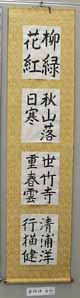 柳緑
花紅
秋山落
日寒
世竹寺
重春雲
清浦洋
行猫健